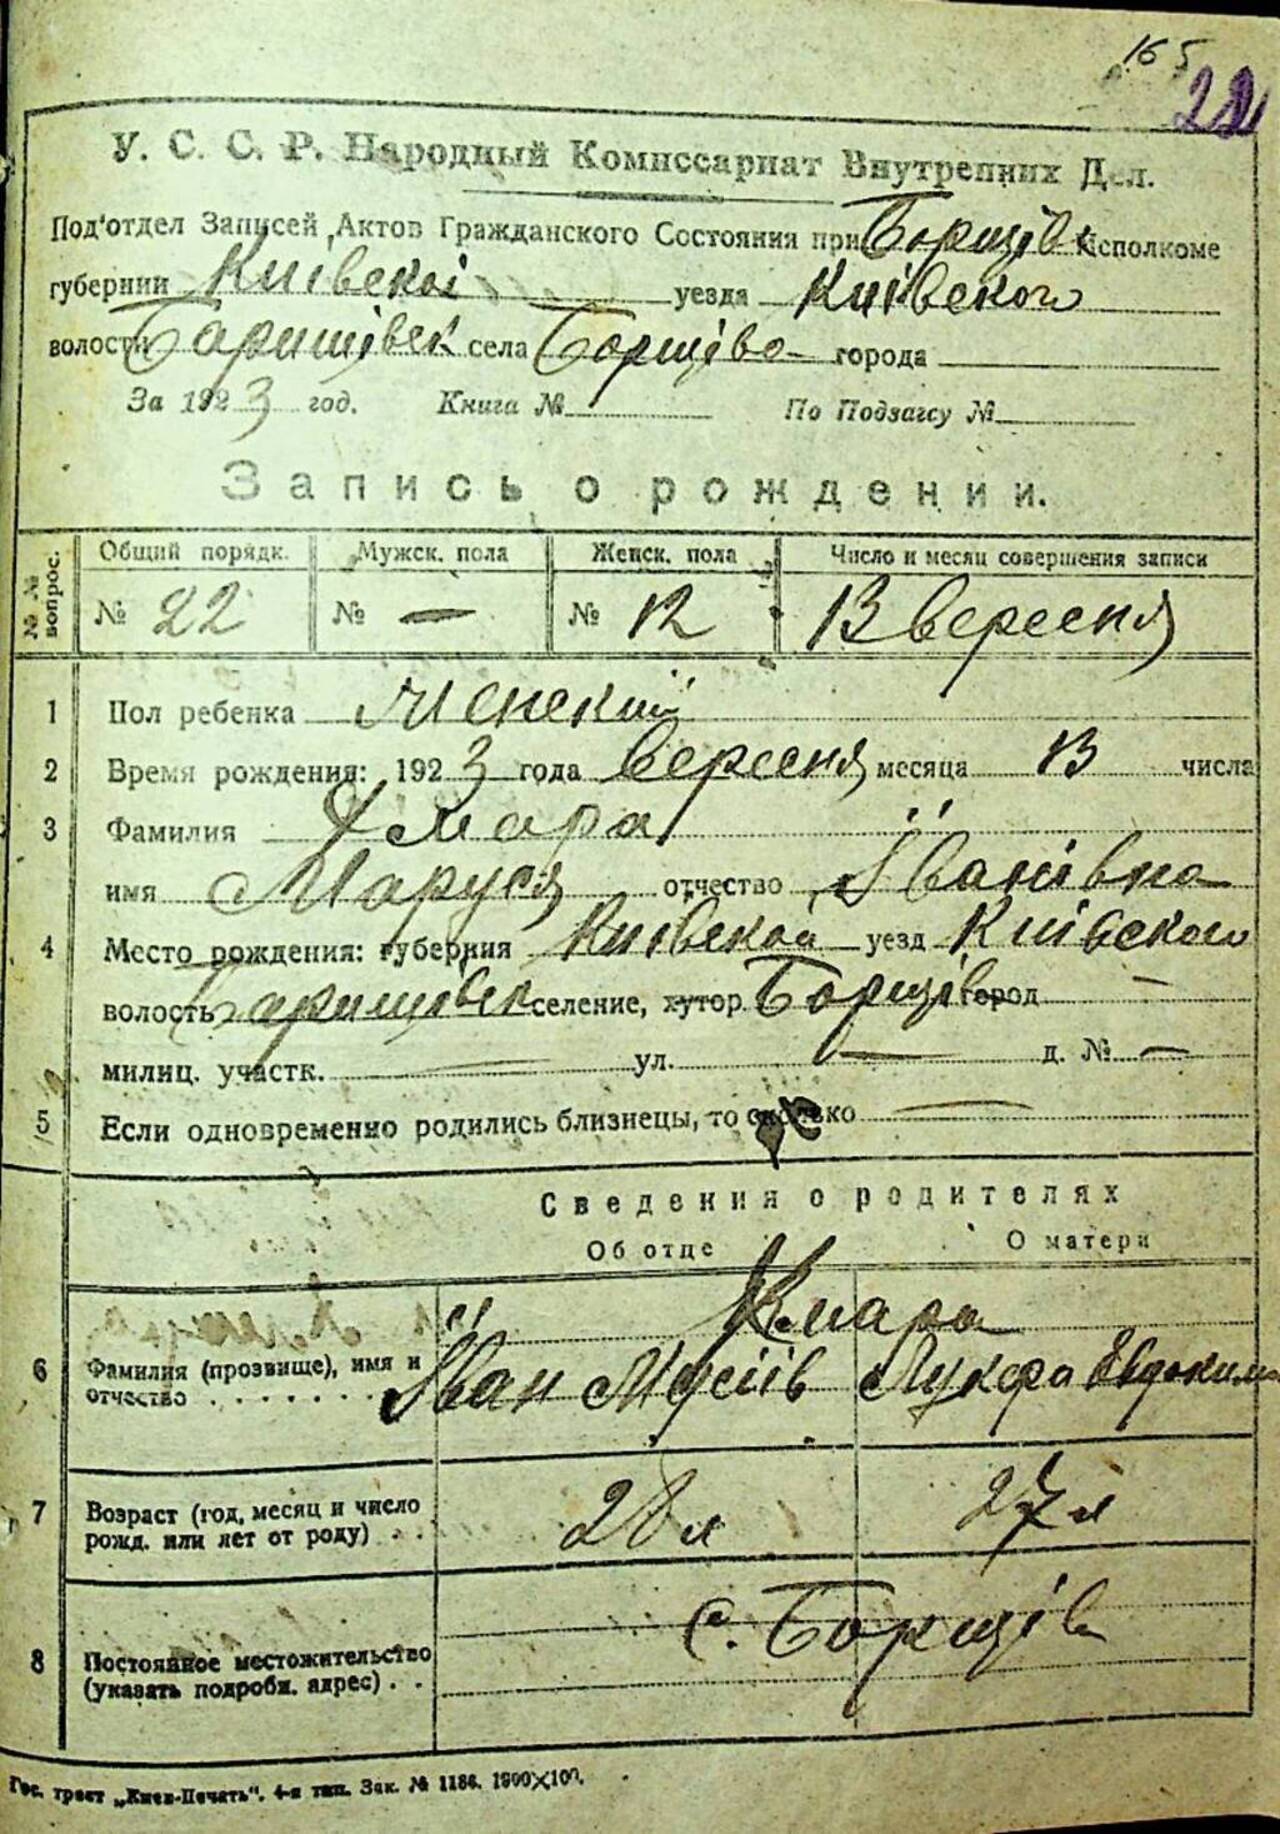 165
22
У. С. С. Р. Народный Комиссариат Внутренних Дел.
Под'отдел Записей Актов Гражданского Состояния при Борщів Исполкоме
губернии Київскої уезда Київского
волости Баришівск села Борщіво города
За 1923 год. Книга № По Подзагсу №
Запись о рождении.
№ № вопрос. Общий порядк. Мужск. пола Женск. пола Число и месяц совершения записи
№ 22 № — № 12 13 вересня
1 Пол ребенка Женский
2 Время рождения: 1923 года вересня месяца 13 числа
3 Фамилия Хмара
имя Маруся отчество Іванівна
4 Место рождения: губерния Київской уезд Київского
волость Баришівск селение, хутор Борщів город —
милиц. участк. — ул. — д. № —
5 Если одновременно родились близнецы, то сколько —
Сведения о родителях
Об отце О матери
Хмара
6 Фамилия (прозвище), имя и отчество . . . . . . Іван Мусіїв Лукера Евдоким
7 Возраст (год, месяц и число рожд. или лет от роду) . . 28 л 27 л
с. Борщів
8 Постоянное местожительство (указать подробн. адрес) . .
Гос. трест „Киев-Печать“. 4-я тип. Зак. № 1186. 1900×100.